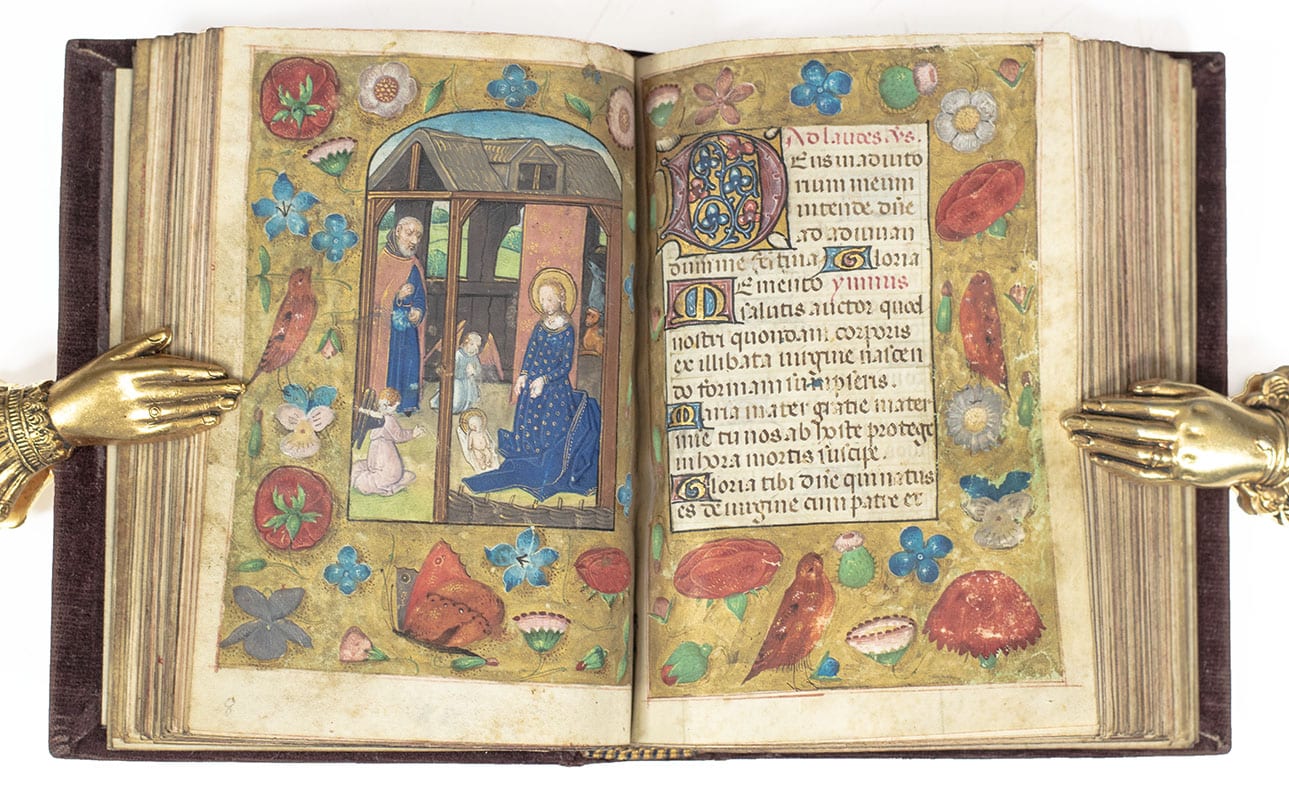 8
Ad laudes v̄s.
Deus in adiuto
rium meum
intende dn̄e
ad adiuuan
dum me festina Gloria
Memento ymnus
salutis auctor quod
nostri quondam corporis
ex illibata uirgine nascen
do formam sumpseris.
Maria mater gratie mater
mie tu nos ab hoste protege
in hora mortis suscipe.
Gloria tibi dn̄e qui natus
es de uirgine cum patre et